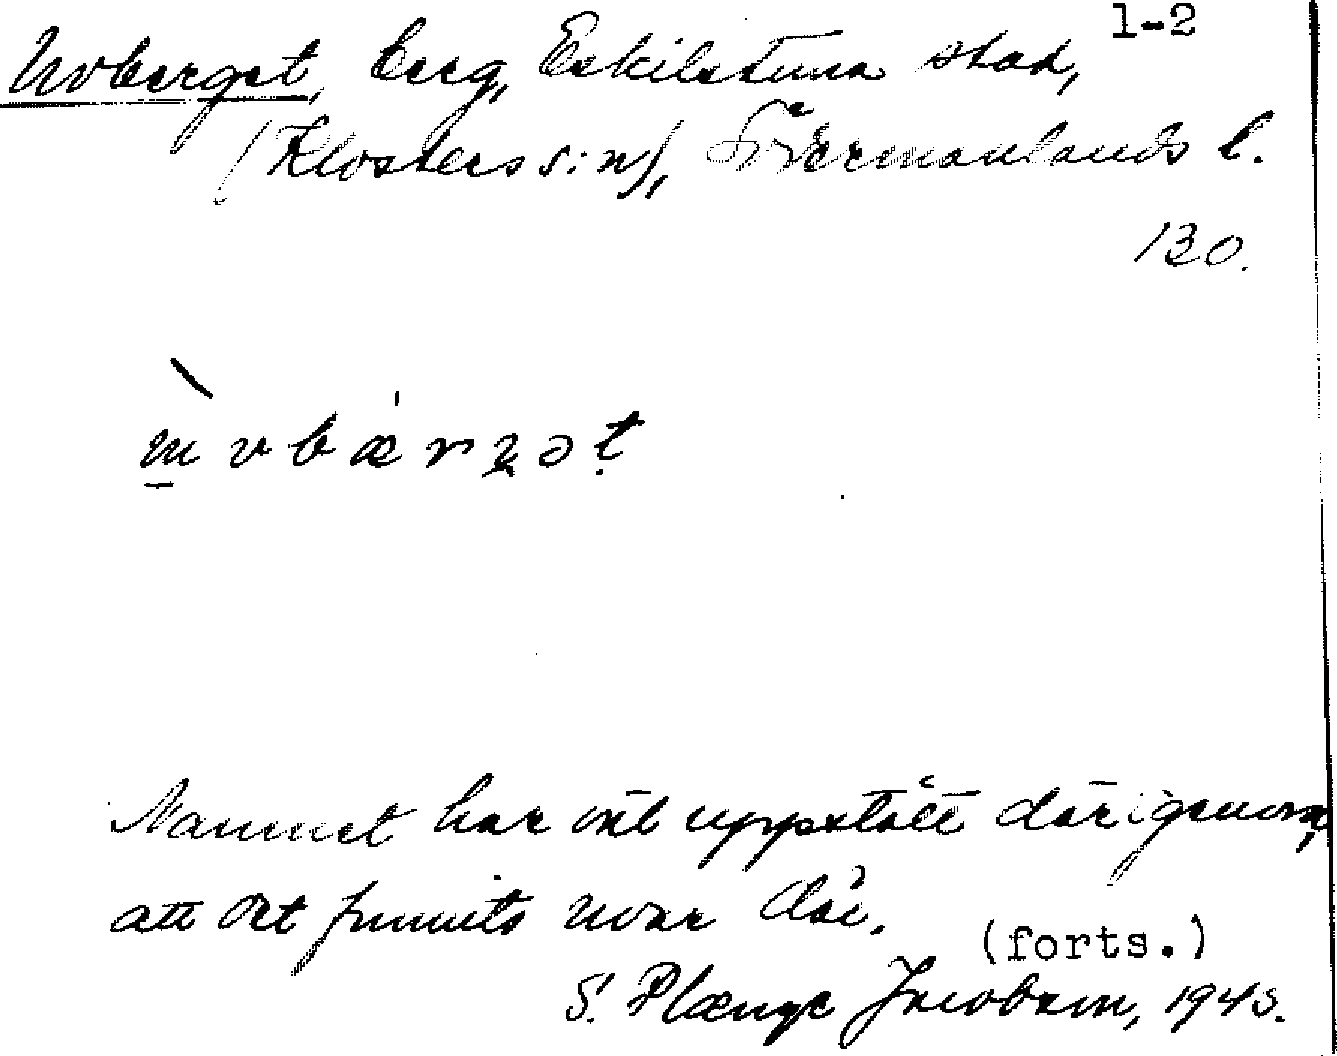 1-2
Uvberget, berg, Eskilstuna stad,
(Klosters s:n), Södermanlands l.
130.
ɯvbærgət
Namnet har väl uppstått därigenom,
att det funnits uvar där.
(forts.)
S. Plænge Jacobson, 1945.